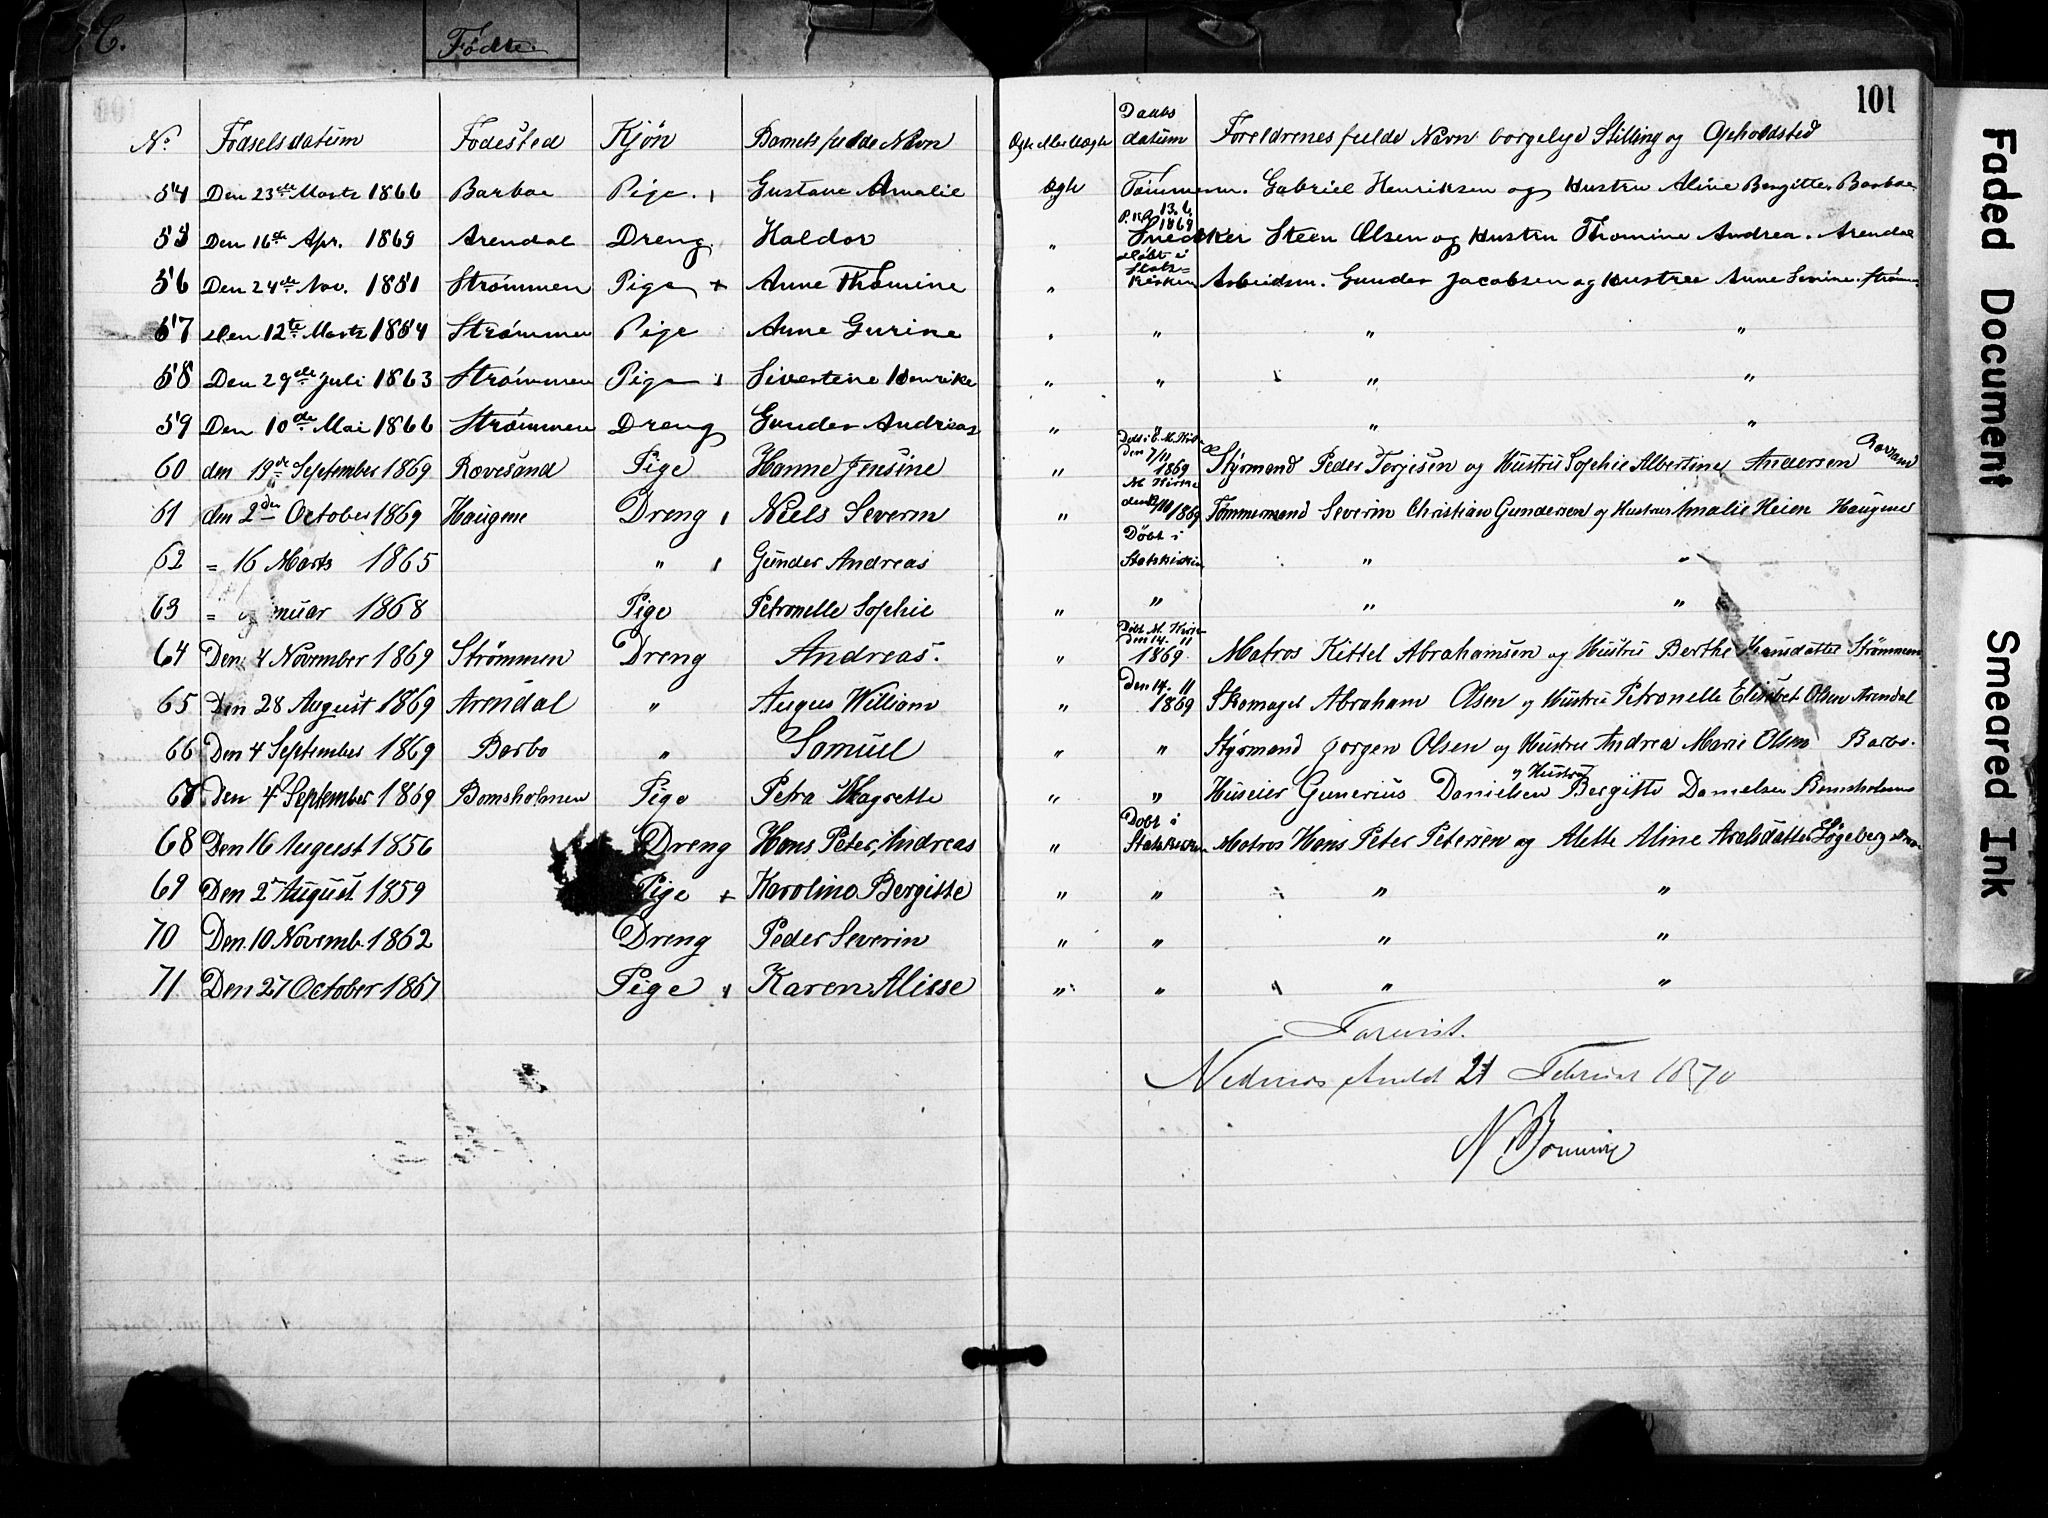 C.
Fødte.
101
Faded Document
Smeared Ink
No Fødselsdatum Fødested Kjøn Barnets fulde Navn Ægte eller Uægte Daabs datum Foreldrenes fulde Navn borgelige Stilling og Opholdsted
54 Den 23de Marts 1866 Barboe Pige Gustava Amalie Ægte Tømmerm. Gabriel Henriksen og Hustru Aline Bergitte. Barboe
55 Den 16de Apr. 1869 Arendal Dreng Haldor " 13.6. 1869 Snedker Steen Olsen og Hustru Thomine Andrea. Arendal
56 Den 24de Nov. 1851 Strømmen Pige + Anne Thomine " Døbt i Statskirken Arbeidsm. Gunder Jacobsen og Hustru Anne Serine.
57 Den 12te Marts 1854 Strømmen Pige Anne Gurine " " " "
58 Den 29de Juli 1863 Strømmen Pige Sivertine Henrike " " " "
59 Den 10de Mai 1866 Strømmen Dreng Gunder Andreas " " "
60 den 19de September 1869 Rævesand Pige Hanne Jensine " den 7/11 1869 Styrmand Peder Terjesen og Hustru Sophie Albertine Andersen
61 den 2den October 1869 Haugene Dreng Niels Severin " M. Kirke 1869 Tømmermand Severin Christian Gundersen og Hustru Amalie Heien Haugene
62 = 16 Marts 1865 " Gunder Andreas Døbt i Statskirken " "
63 = nuar 1868 Pige Petronelle Sophie " " " "
64 Den 4 November 1869 Strømmen Dreng Andreas. " Døbt M. Kirke den 14. 11 1869 Matros Kittel Abrahamsen og Hustru Berthe Hansdatter Strømmen
65 Den 28 August 1869 Arendal " August William " Den 14. 11 1869 Skomager Abraham Olsen og Hustru Petronelle Elisabet Olsen Arendal
66 Den 4 September 1869 Barbo " Samuel " " Styrmand Jørgen Olsen og Hustru Andrea Marie Olsen Barbo.
67 Den 4 September 1869 Bomsholmen Pige Petra Magrette " " Huseier Gunerius Danielsen og Hustru Bergitte Danielsen Bomsholmen
68 Den 16 August 1856 Dreng Hans Peter Andreas " Døbt i Statskirken Matros Hans Peter Petersen og Mette Aline
69 Den 2 August 1859 Pige + Karoline Bergitte " " " "
70 Den 10 Novemb. 1862 Dreng Peder Severin " " " "
71 Den 27 October 1867 Pige Karen Alisse " " " "
Forevist.
Nedenes Amt d 21 Februar 1870